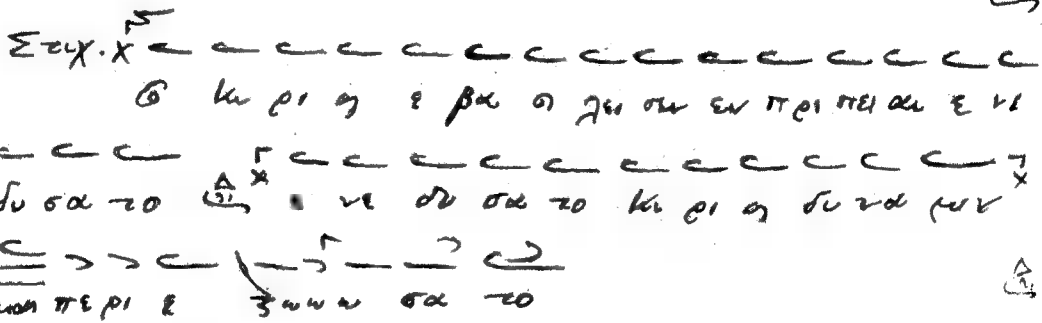 Στιχ. χ
Ο Κυ ρι ο ς ε βα σι λευ σεν εν πρι πει αν ε νε
δυ σα το ε νε δυ σα το Κυ ρι ο ς δυ να μιν
και πε ρι ε ζω ω ω σα το